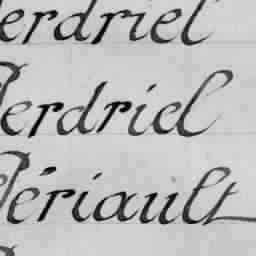 Perdriel
Perdriel
Périault